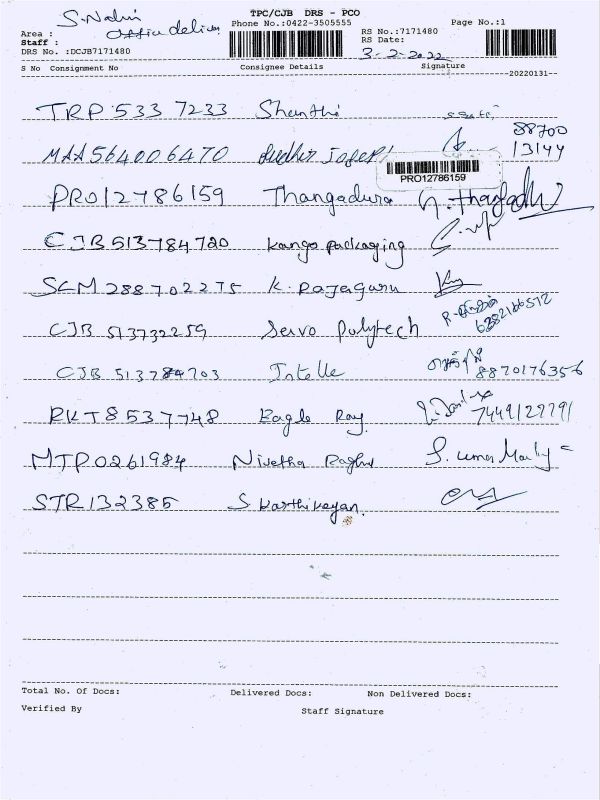 TPC/CJB DRS - PCO
S. Nalini
Office delivery
Phone No.:0422-3505555
Page No.:1
Area :
Staff :
DRS No. :DCJB7171480
RS No.:7171480
RS Date:
3-2-2022
S No Consignment No Consignee Details Signature
20220131
TRP 533 7233 Shanthi
88700
MAA 564006470 Sudhir Joseph 13144
PRO12786159
PRO12786159 Thangadurai
CJB 513784720 Kango packaging
SCM 288702275 K. Rajaguru
CJB 513732259 Servo Polytech 6382166512
CJB 513784703 Intelle 8870176356
RKT8537748 Eagle Ray 7449129791
MTP0261984 Nivetha Raghu
STR132385 S Karthikeyan.
Total No. Of Docs: Delivered Docs: Non Delivered Docs:
Verified By Staff Signature